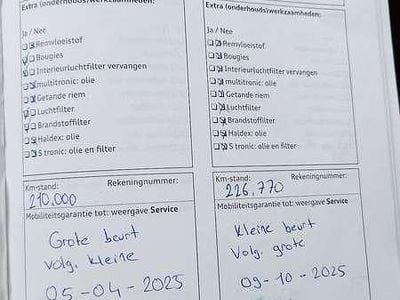 Extra (onderhouds)werkzaamheden:
Ja / Nee
Remvloeistof
Bougies
Interieurluchtfilter vervangen
multitronic: olie
Getande riem
Luchtfilter
Brandstoffilter
Haldex: olie
S tronic: olie en filter
Km-stand: Rekeningnummer:
210,000
Mobiliteitsgarantie tot: weergave Service
Grote beurt
volg. kleine
05-04-2025
Extra (onderhouds)werkzaamheden:
Ja / Nee
Remvloeistof
Bougies
Interieurluchtfilter vervangen
multitronic: olie
Getande riem
Luchtfilter
Brandstoffilter
Haldex: olie
S tronic: olie en filter
Km-stand: Rekeningnummer:
226,770
Mobiliteitsgarantie tot: weergave Service
Kleine beurt
Volg. grote
09-10-2025